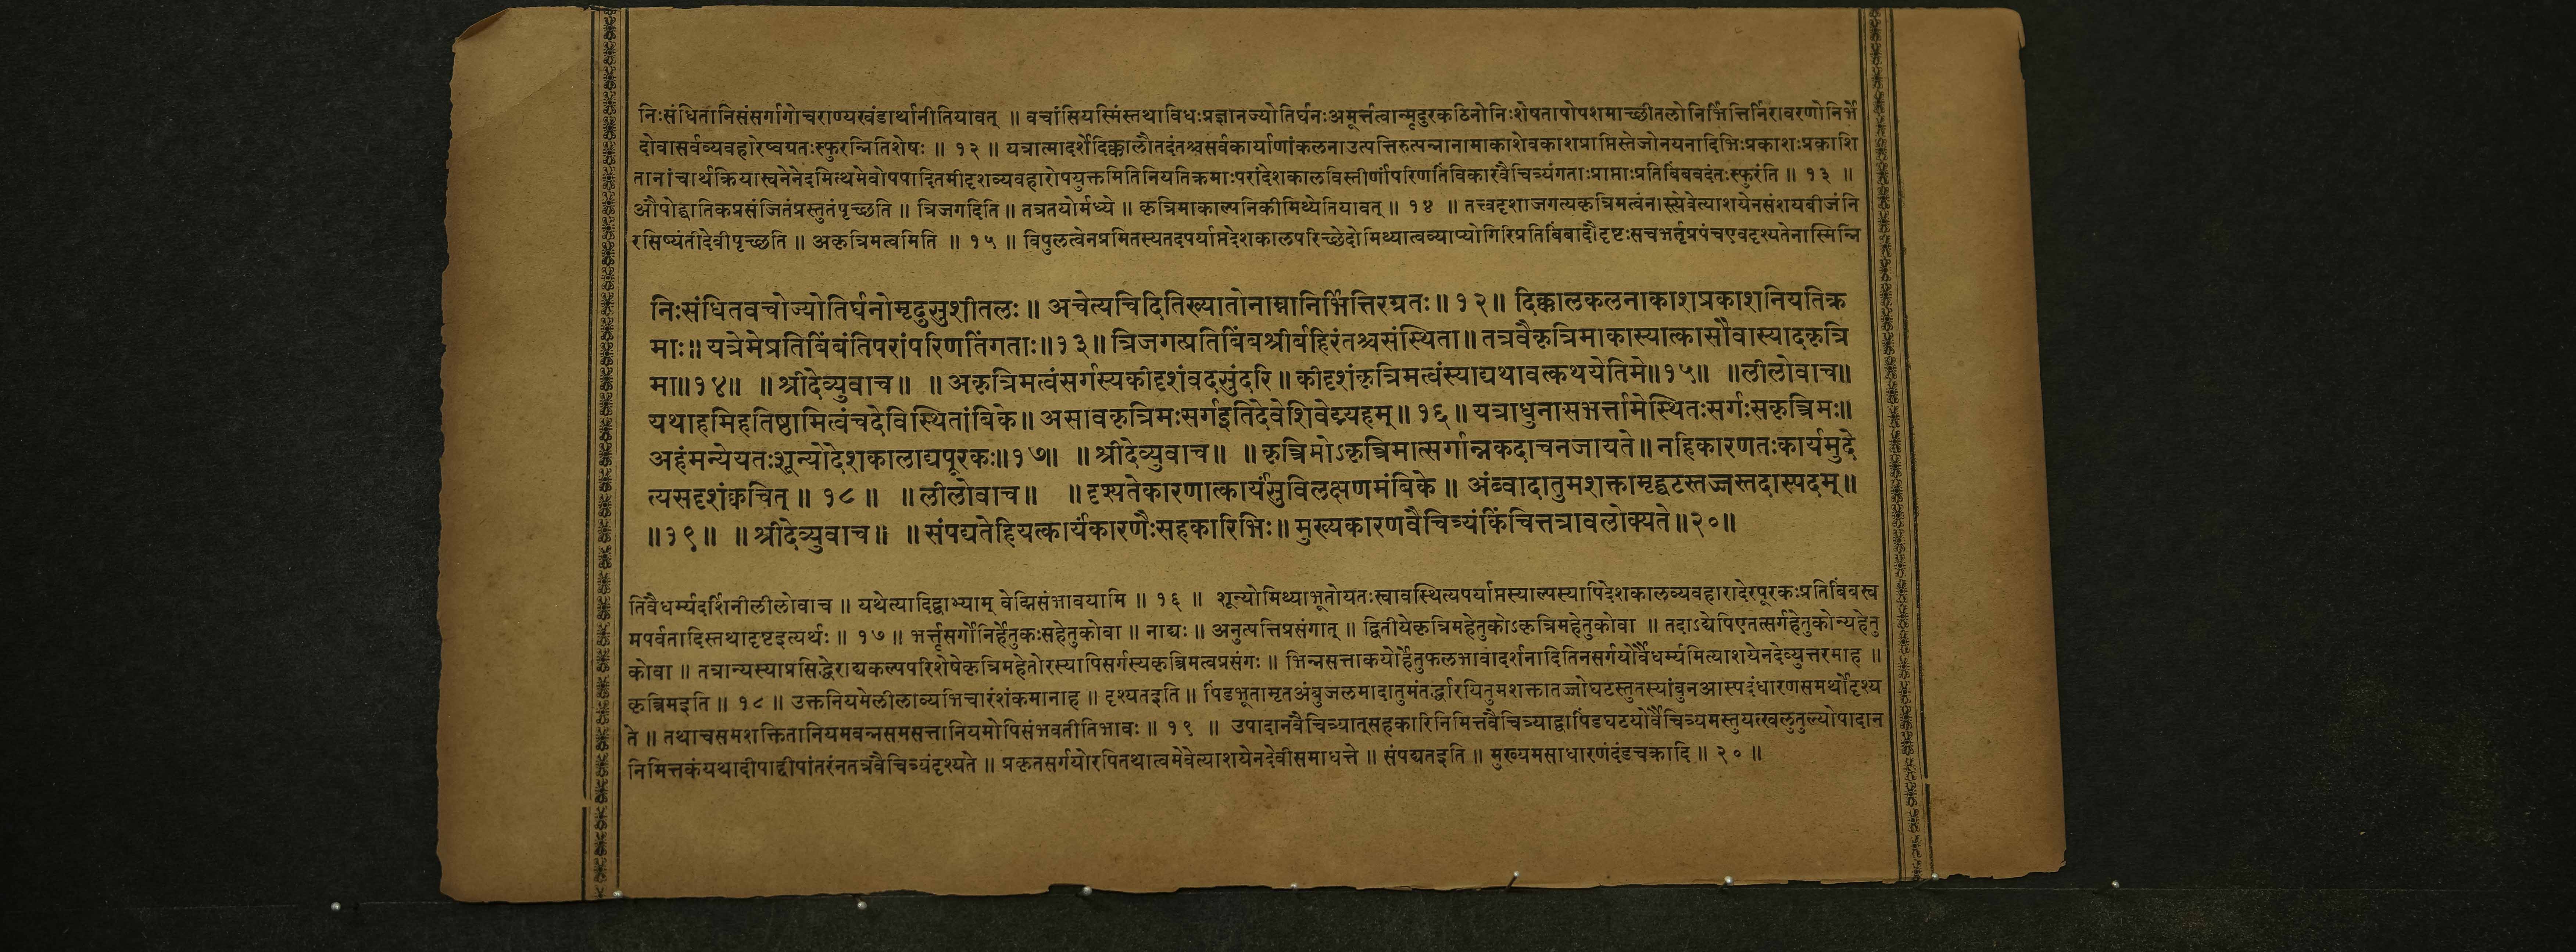 निःसंधितानिसंसर्गागोचराण्यखंडार्थानीतियावत् ॥ वचांसियस्मिंस्तथाविधःप्रज्ञानज्योतिर्घनःअमूर्त्तत्वान्मृदुरकठिनोनिःशेषतापोपशमाच्छीतलोनिर्भित्तिर्निरावरणोनिर्भे
दोवासर्वव्यवहारेष्वग्रतःस्फुरन्नितिशेषः ॥ १२ ॥ यत्रात्मादर्शेदिक्कालौतदंतश्चसर्वकार्याणांकलनाउत्पत्तिरुत्पन्नानामाकाशेवकाशप्राप्तिस्तेजोनयनादिभिःप्रकाशःप्रकाशि
तानांचार्थक्रियास्वनेनेदमित्थमेवोपपादितमीदृशव्यवहारोपयुक्तमितिनियतिक्रमाःपरांदेशकालविस्तीर्णांपरिणतिंविकारवैचित्र्यंगताःप्राप्ताःप्रतिबिंबवदंतःस्फुरंति ॥ १३ ॥
औपोद्घातिकप्रसंजितंप्रस्तुतंपृच्छति ॥ त्रिजगदिति ॥ तत्रतयोर्मध्ये ॥ कृत्रिमाकाल्पनिकीमिथ्येतियावत् ॥ १४ ॥ तत्त्वदृशाजगत्यकृत्रिमत्वंनास्त्येवेत्याशयेनसंशयबीजंनि
रसिष्यंतीदेवीपृच्छति ॥ अकृत्रिमत्वमिति ॥ १५ ॥ विपुलत्वेनप्रमितस्यतदपर्याप्तदेशकालपरिच्छेदोमिथ्यात्वव्याप्योगिरिप्रतिबिंबादौदृष्टःसचभर्तृप्रपंचएवदृश्यतेनास्मिन्नि
निःसंधितवचोज्योतिर्घनोमृदुसुशीतलः ॥ अचेत्यचिदितिख्यातोनाम्नानिर्भित्तिरग्रतः ॥ १२ ॥ दिक्कालकलनाकाशप्रकाशनियतिक्र
माः ॥ यत्रेमेप्रतिबिंबंतिपरांपरिणतिंगताः ॥ १३ ॥ त्रिजगत्प्रतिबिंबश्रीर्बहिरंतश्चसंस्थिता ॥ तत्रवैकृत्रिमाकास्यात्कासौवास्यादकृत्रि
मा ॥ १४ ॥ ॥ श्रीदेव्युवाच ॥ ॥ अकृत्रिमत्वंसर्गस्यकीदृशंवदसुंदरि ॥ कीदृशंकृत्रिमत्वंस्याद्यथावत्कथयेतिमे ॥ १५ ॥ ॥ लीलोवाच ॥
यथाहमिहतिष्ठामित्वंचदेविस्थितांबिके ॥ असावकृत्रिमःसर्गइतिदेवेशिवेद्म्यहम् ॥ १६ ॥ यत्राधुनासभर्त्तामेस्थितःसर्गःसकृत्रिमः ॥
अहंमन्येयतःशून्योदेशकालाद्यपूरकः ॥ १७ ॥ ॥ श्रीदेव्युवाच ॥ ॥ कृत्रिमोऽकृत्रिमात्सर्गान्नकदाचनजायते ॥ नहिकारणतःकार्यमुदे
त्यसदृशंक्वचित् ॥ १८ ॥ ॥ लीलोवाच ॥ ॥ दृश्यतेकारणात्कार्यंसुविलक्षणमंबिके ॥ अंब्वादातुमशक्तामृद्घटस्तज्जस्तदास्पदम् ॥
॥ १९ ॥ ॥ श्रीदेव्युवाच ॥ ॥ संपद्यतेहियत्कार्यंकारणैःसहकारिभिः ॥ मुख्यकारणवैचित्र्यंकिंचित्तत्रावलोक्यते ॥ २० ॥
तिवैधर्म्यदर्शिनीलीलोवाच ॥ यथेत्यादिद्वाभ्याम् वेद्मिसंभावयामि ॥ १६ ॥ शून्योमिथ्याभूतोयतःस्वावस्थित्यपर्याप्तस्याल्पस्यापिदेशकालव्यवहारादेरपूरकःप्रतिबिंबस्व
मपर्वतादिस्तथादृष्टइत्यर्थः ॥ १७ ॥ भर्त्तृसर्गोनिर्हेतुकःसहेतुकोवा ॥ नाद्यः ॥ अनुत्पत्तिप्रसंगात् ॥ द्वितीयेकृत्रिमहेतुकोऽकृत्रिमहेतुकोवा ॥ तदाऽद्येपिएतत्सर्गहेतुकोन्यहेतु
कोवा ॥ तत्रान्यस्याप्रसिद्धेराद्यकल्पपरिशेषेकृत्रिमहेतोरस्यापिसर्गस्यकृत्रिमत्वप्रसंगः ॥ भिन्नसत्ताकयोर्हेतुफलभावादर्शनादितिनसर्गयोर्वैधर्म्यमित्याशयेनदेव्युत्तरमाह ॥
कृत्रिमइति ॥ १८ ॥ उक्तनियमेलीलाव्यभिचारंशंकमानाह ॥ दृश्यतइति ॥ पिंडभूतामृतअंबुजलमादातुमंतर्द्धारयितुमशक्तातज्जोघटस्तुतस्यांबुनआस्पदंधारणसमर्थोदृश्य
ते ॥ तथाचसमशक्तितानियमवन्नसमसत्तानियमोपिसंभवतीतिभावः ॥ १९ ॥ उपादानवैचित्र्यात्सहकारिनिमित्तवैचित्र्याद्वापिंडघटयोर्वैचित्र्यमस्तुयत्खलुतुल्योपादान
निमित्तकंयथादीपाद्दीपांतरंनतत्रवैचित्र्यंदृश्यते ॥ प्रकृतसर्गयोरपितथात्वमेवेत्याशयेनदेवीसमाधत्ते ॥ संपद्यतइति ॥ मुख्यमसाधारणंदंडचक्रादि ॥ २० ॥